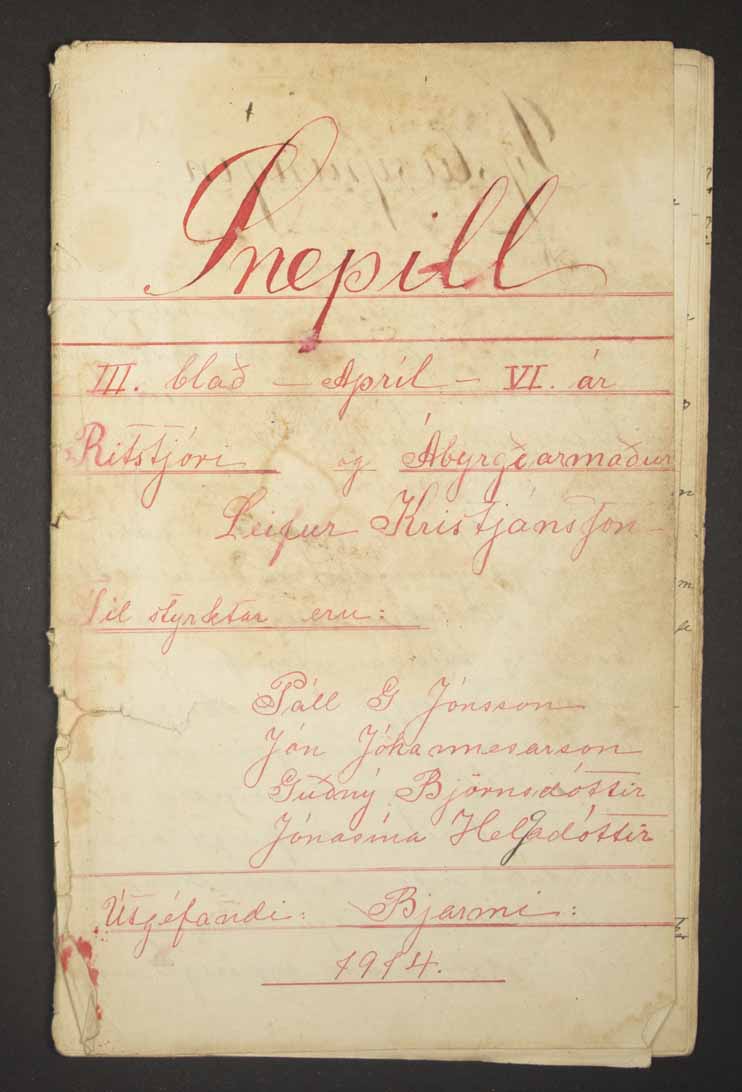 Snepill
III. blað – Apríl – VI. ár
Ritstjóri og Ábyrgðarmaður
Leifur Kristjánsson
Til styrktar eru:
Páll G Jónsson
Jón Jóhannesarson
Guðný Björnsdóttir
Jónasína Helgadóttir
Útgéfandi: Bjarmi:
1914.